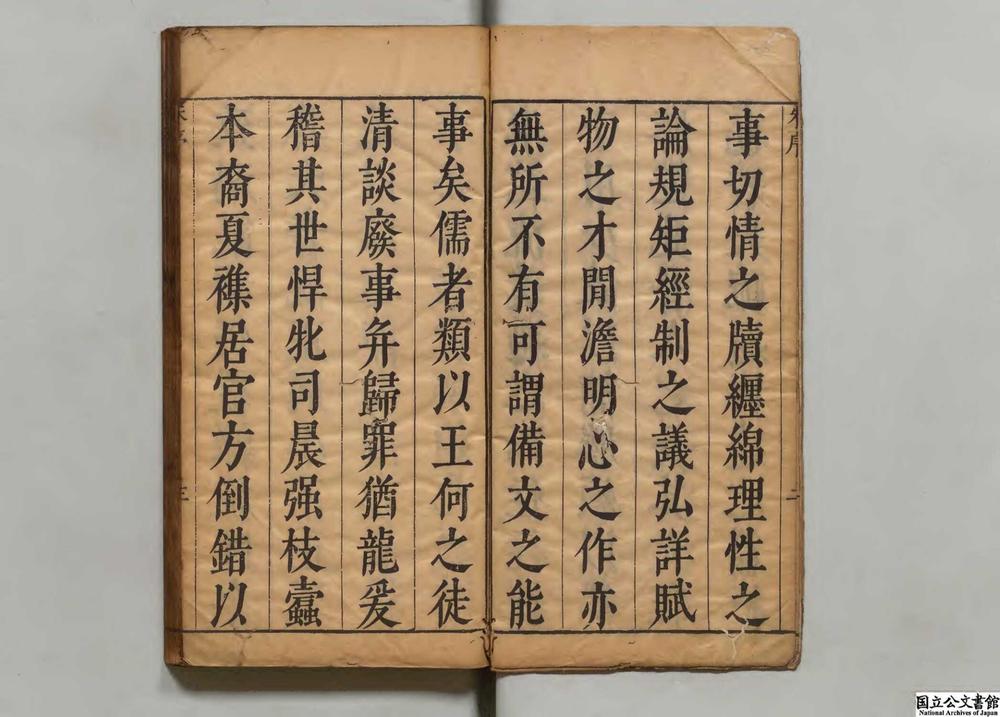 事切情之牘纏綿理性之
論規矩經制之議弘詳賦
物之才閒澹明心之作亦
無所不有可謂備文之能
事矣儒者類以王何之徒
清談廢事弁歸罪猶龍爰
稽其世悍牝司晨强枝蠹
本裔夏襍居官方倒錯以
二
三
国立公文書館
National Archives of Japan